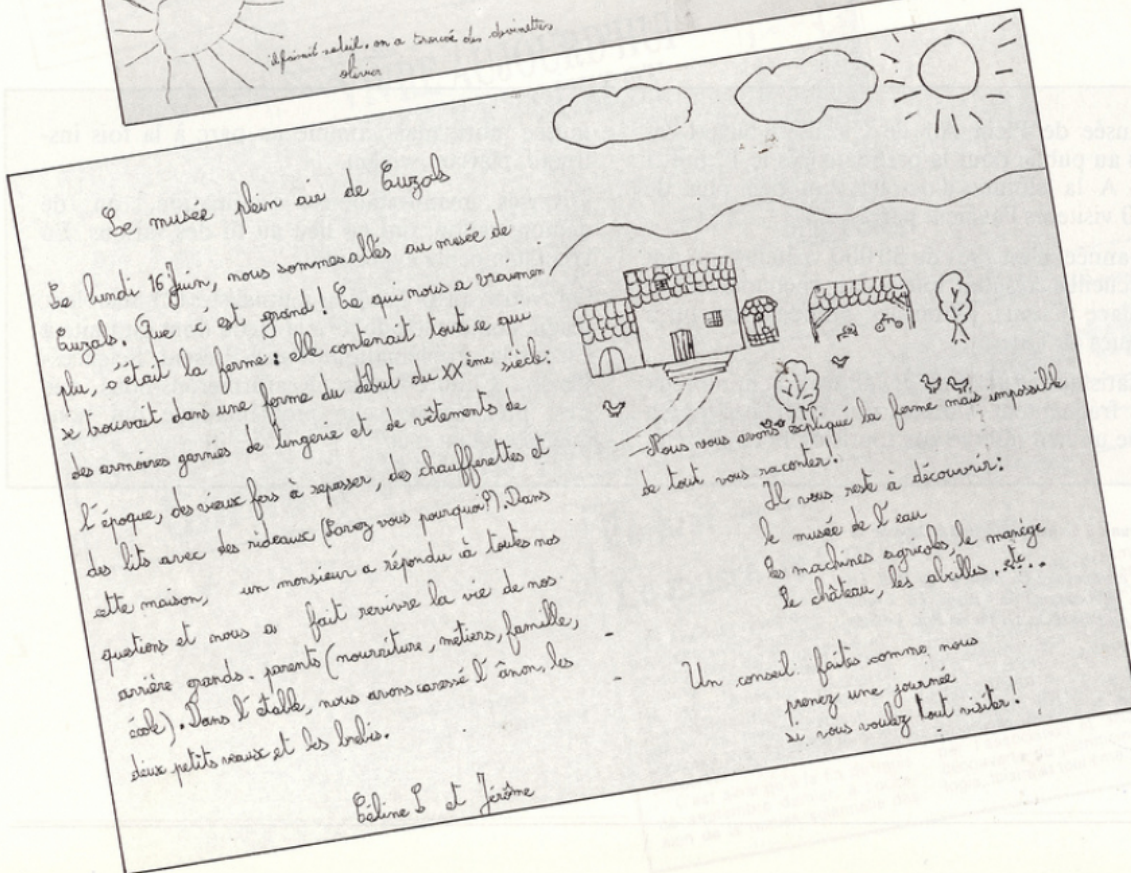 il faisait soleil, on a trouvé des devinettes
olivier
Le musée plein air de Cuzals
Le lundi 16 Juin, nous sommes allés au musée de
Cuzals. Que c'est grand! Ce qui nous a vraimen
plu, c'était la ferme: elle contenait tout ce qui
se trouvait dans une ferme du début du XXème siècle:
des armoires garnies de lingerie et de vêtements de
l'époque, des vieux fers à repasser, des chaufferettes et
des lits avec des rideaux (Savez vous pourquoi?). Dans
cette maison, un monsieur a répondu à toutes nos
questions et nous a fait revivre la vie de nos
arrière grands-parents (nourriture, métiers, famille,
école). Dans l'étable, nous avons caressé l'ânon, les
deux petits veaux et les brebis.
Céline L et Jérôme
Nous vous avons expliqué la ferme mais impossible
de tout vous raconter!
Il vous reste à découvrir:
le musée de l'eau
les machines agricoles, le manège
le château, les abeilles... etc...
Un conseil: faites comme nous
prenez une journée
si vous voulez tout visiter!